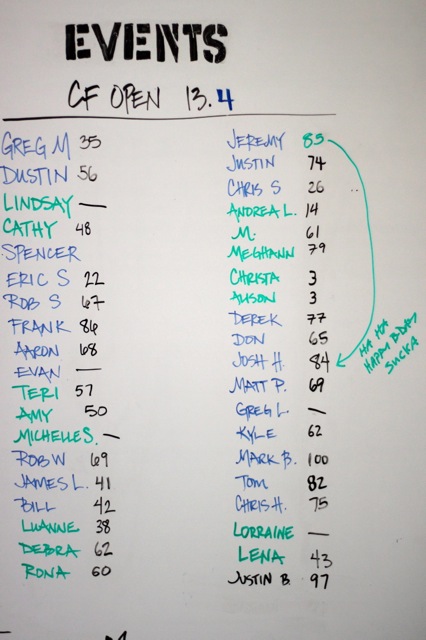 EVENTS
CF OPEN 13.4
GREG M 35
DUSTIN 56
LINDSAY —
CATHY 48
SPENCER
ERIC S 22
ROB S 67
FRANK 86
AARON 68
EVAN —
TERI 57
AMY 50
MICHELLE S. —
ROB W 69
JAMES L. 41
BILL 42
LUANNE 38
DEBRA 62
RONA 60
JEREMY 85
JUSTIN 74
CHRIS S 26
ANDREA L. 14
M. 61
MEGHANN 79
CHRISTA 3
ALISON 3
DEREK 77
DON 65
JOSH H. 84
MATT P. 69
GREG L —
KYLE 62
MARK B. 100
TOM 82
CHRIS H. 75
LORRAINE —
LENA 43
JUSTIN B. 97
HA HA
HAPPY B-DAY
SUCKA